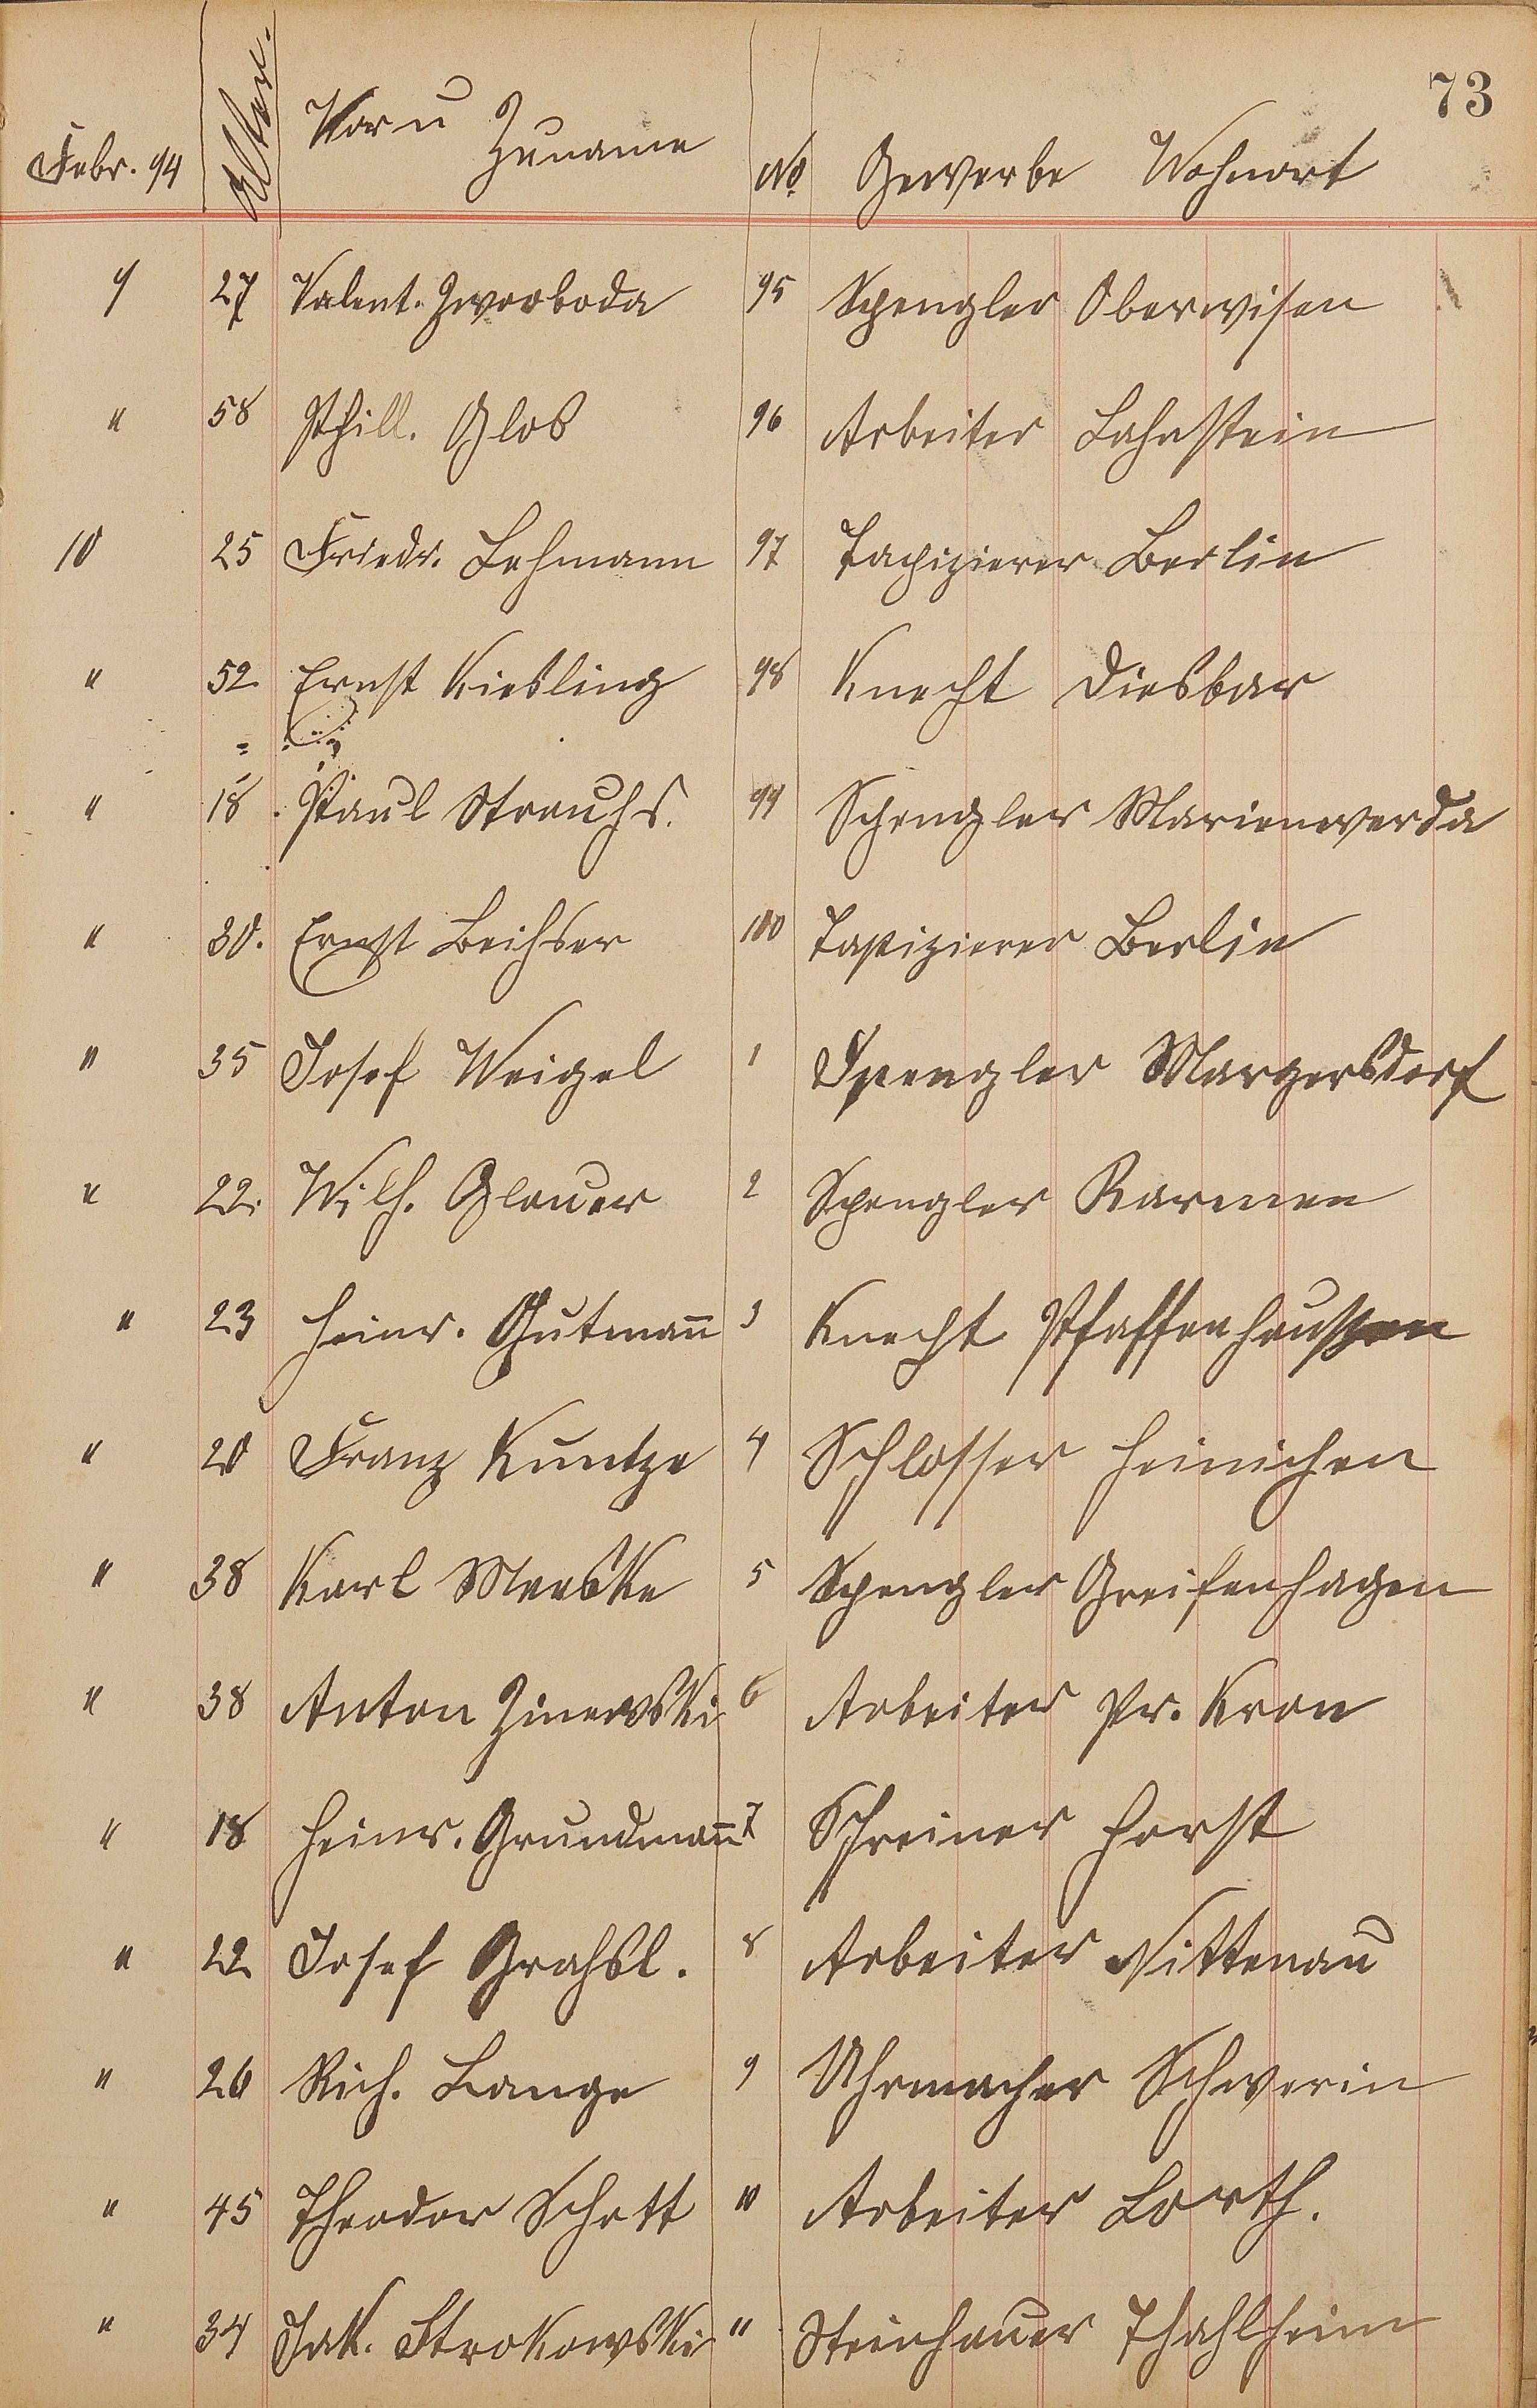 73
Febr. 94 Alter. Vor u Zuname No. Gewerbe Wohnort
9 27 Valent. Zworboda 95 Spengler Oberwisen
" 58 Phill. Glos 96 Arbeiter Lahnstein
10 25 Friedr. Lehmann 97 Tapizierer Berlin
" 52 Ernst Kiesling 98 Knecht Diesbar
" 18 Paul Strauhs. 99 Spengler Marienwerda
" 30. Ernst Beihser 100 Tapizierer Berlin
" 35 Josef Weigel 1 Spengler Margersdorf
" 22. Wilh. Glauer 2 Spengler Barmen
" 23 Heinr. Gutmann 3 Knecht Pfaffenhaussen
" 20 Franz Kuntze 4 Schlosser Heinichen
" 38 Karl Maaske 5 Spengler Greifenhagen
" 38 Anton Zinewski 6 Arbeiter Pr. Kron
" 18 Heinr. Grundmann 7 Schreiner Horst
" 22 Josef Grahsl. 8 Arbeiter Nittenau
" 26 Rich. Lange 9 Uhrmacher Schwerin
" 45 Theodor Schott 10 Arbeiter Lorth.
" 34 Jak. Strokowski 11 Steinhauer Thahlheim